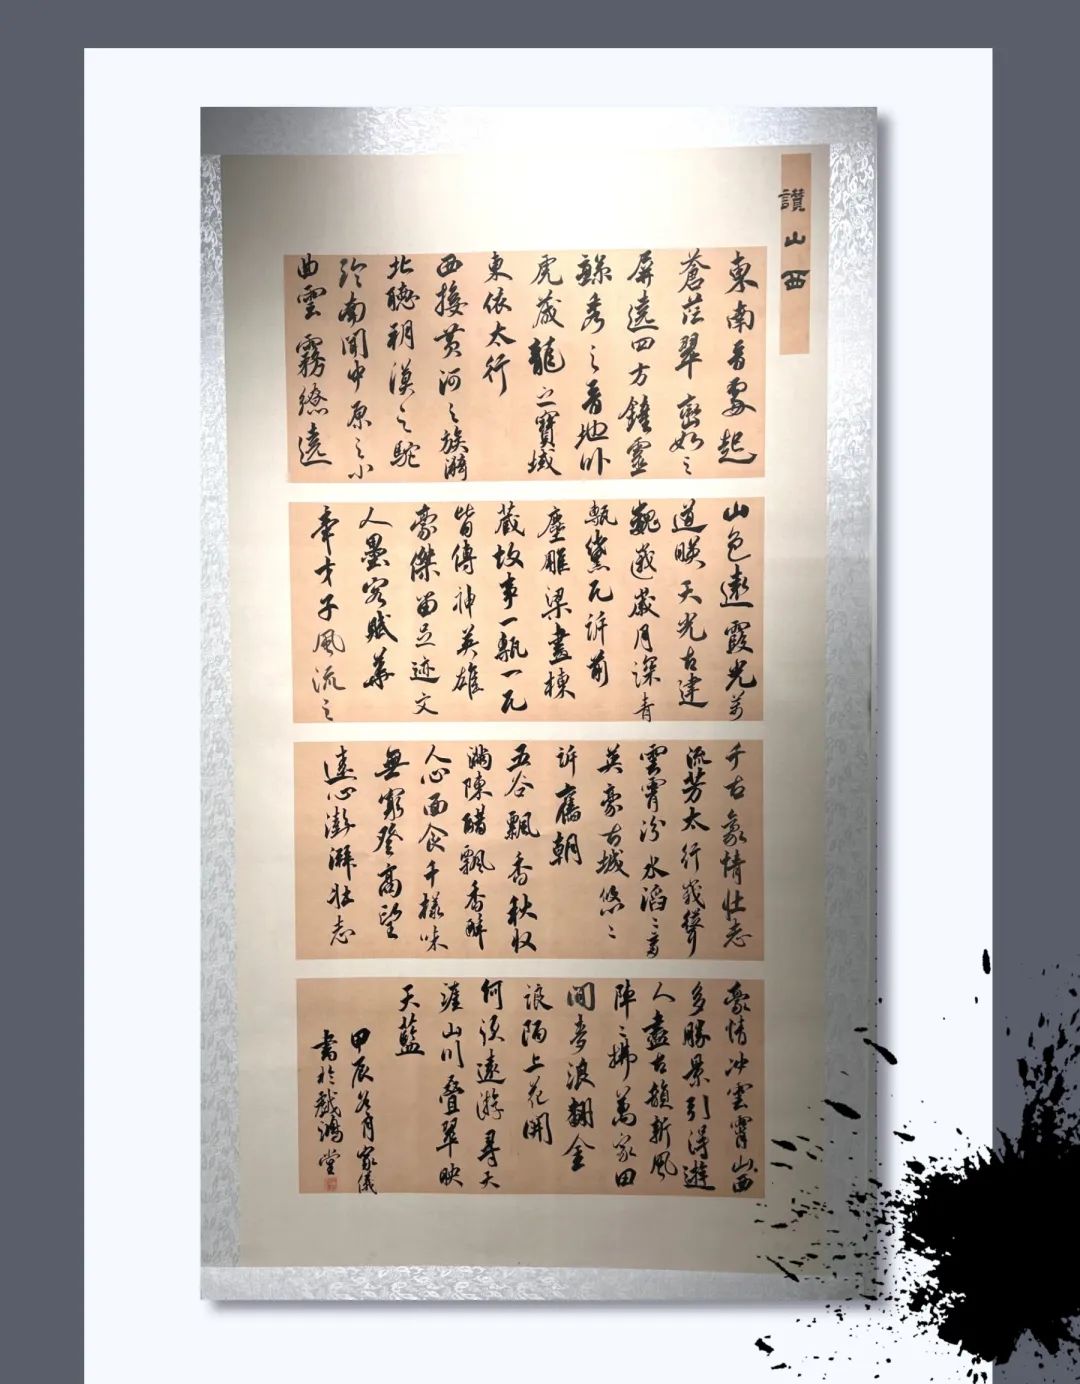 讚山西
東南晋要起
蒼茫翠巒如之
屏遠四方鐘靈
毓秀之晋地卧
虎藏龍之寶域
東依太行
西接黄河之族漪
北聽朔漠之駝
鈴南聞中原之小
曲雲霧繚遶
山色遼霞光前
道映天光古建
巍巍歲月深青
甎黛瓦訴前
塵雕梁畫棟
藏故事一甎一瓦
皆傳神英雄
豪傑留足迹文
人墨客賦華
章才子風流之
千古豪情壮志
流芳太行巍聳
雲霄汾水滔々育
英豪古城悠々
訴舊朝
五谷飄香秋收
滿陳醋飄香醉
人心面食千樣味
無窮登高望
遠心澎湃壮志
豪情冲雲霄山西
多勝景引得遊
人盡古韻新風
陣々拂萬家田
間麥浪翻金
浪陌上花開
何須遠游尋天
涯山川叠翠映
天藍
甲辰冬月家儀
書於戲鴻堂